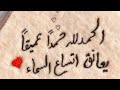 الحمد لله حمداً عميقاً
يعانق اتساع السماء